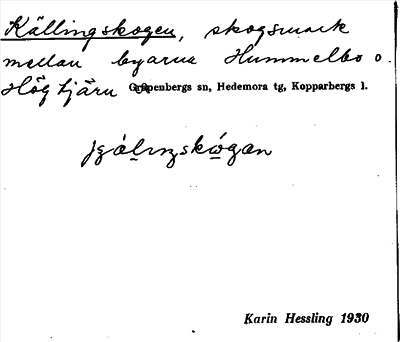 Källingskogen, skogsmark
mellan byarna Hummelbo o.
Högtjärn Garpenbergs sn, Hedemora tg, Kopparbergs l.
Karin Hessling 1930